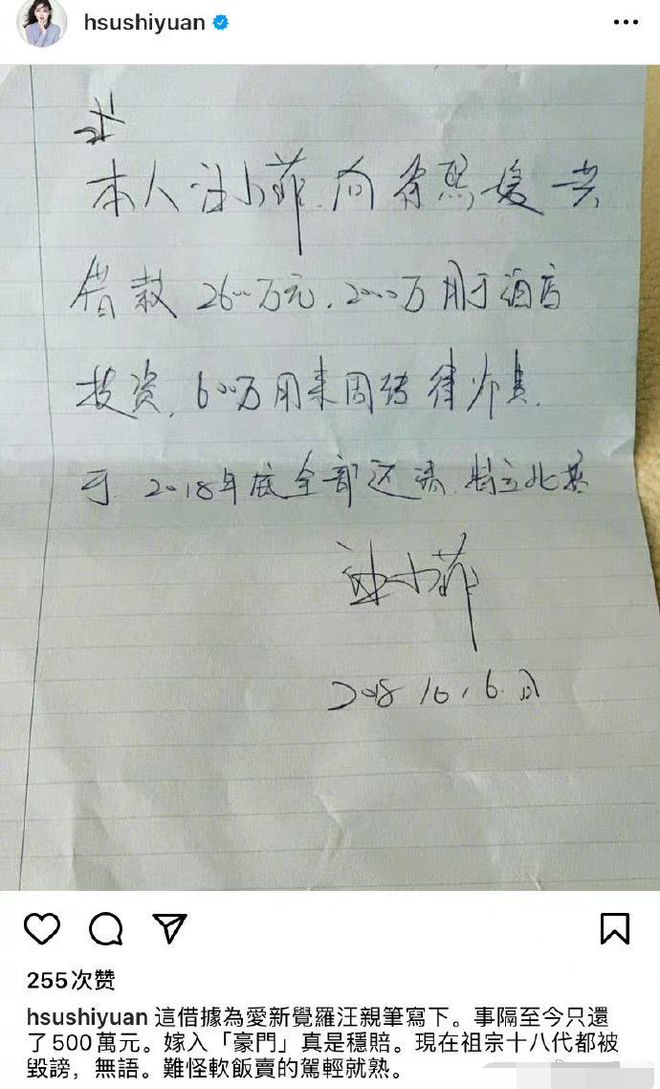 hsushiyuan
本人汪小菲向徐熙媛共
借款2600万元,2000万用于酒店
投资,600万用来周转律师费.
于2018年底全部还清.特立此
汪小菲
2018
255次赞
hsushiyuan 這借據為愛新覺羅汪親筆寫下。事隔至今只還
了500萬元。嫁入「豪門」真是穩賠。現在祖宗十八代都被
毀謗，無語。難怪軟飯賣的駕輕就熟。